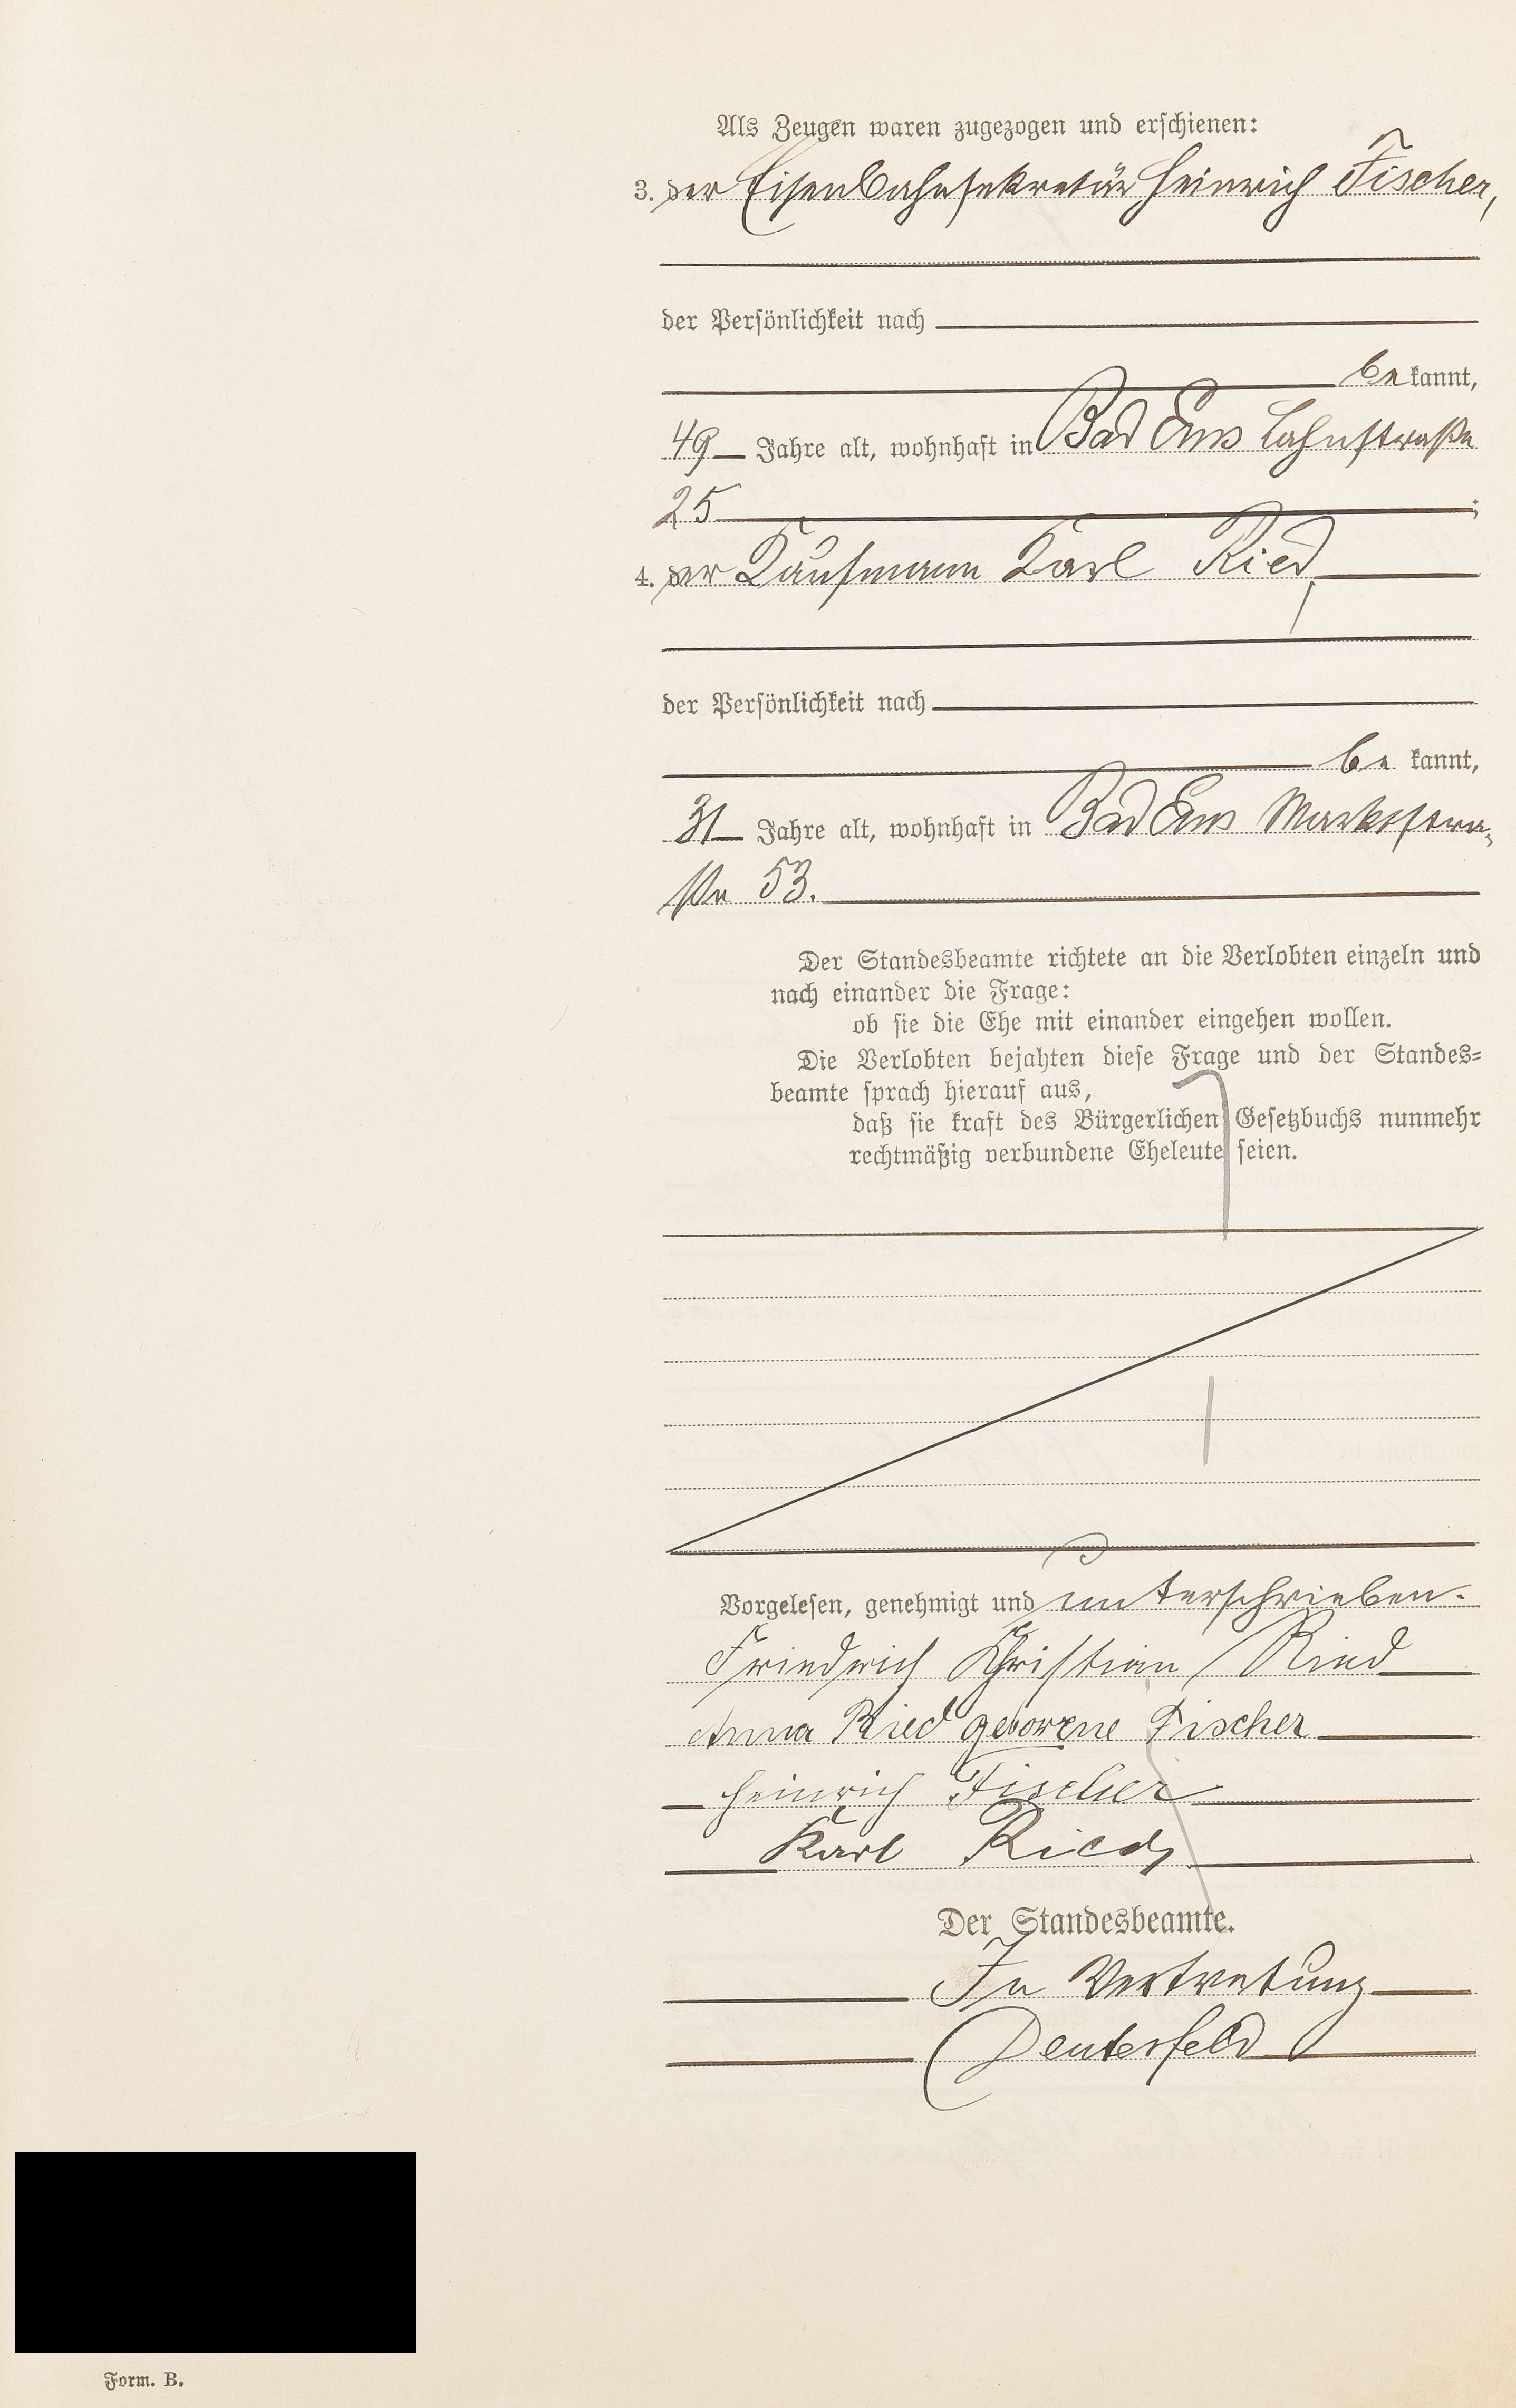 Als Zeugen waren zugezogen und erschienen:
3. der Eisenbahnsekretär Heinrich Fischer,
der Persönlichkeit nach
bekannt,
49 Jahre alt, wohnhaft in Bad Ems Lahnstraße
25 ;
4. der Kaufmann Karl Ried,
der Persönlichkeit nach
be kannt,
31 Jahre alt, wohnhaft in Bad Ems Marktstra-
ße 53.
Der Standesbeamte richtete an die Verlobten einzeln und
nach einander die Frage:
ob sie die Ehe mit einander eingehen wollen.
Die Verlobten bejahten diese Frage und der Standes=
beamte sprach hierauf aus,
daß sie kraft des Bürgerlichen Gesetzbuchs nunmehr
rechtmäßig verbundene Eheleute seien.
Vorgelesen, genehmigt und unterschrieben.
Friedrich Christian Ried
Anna Ried geborene Fischer
Heinrich Fischer
Karl Ried
Der Standesbeamte.
In Vertretung
Deutesfeld
Form. B.